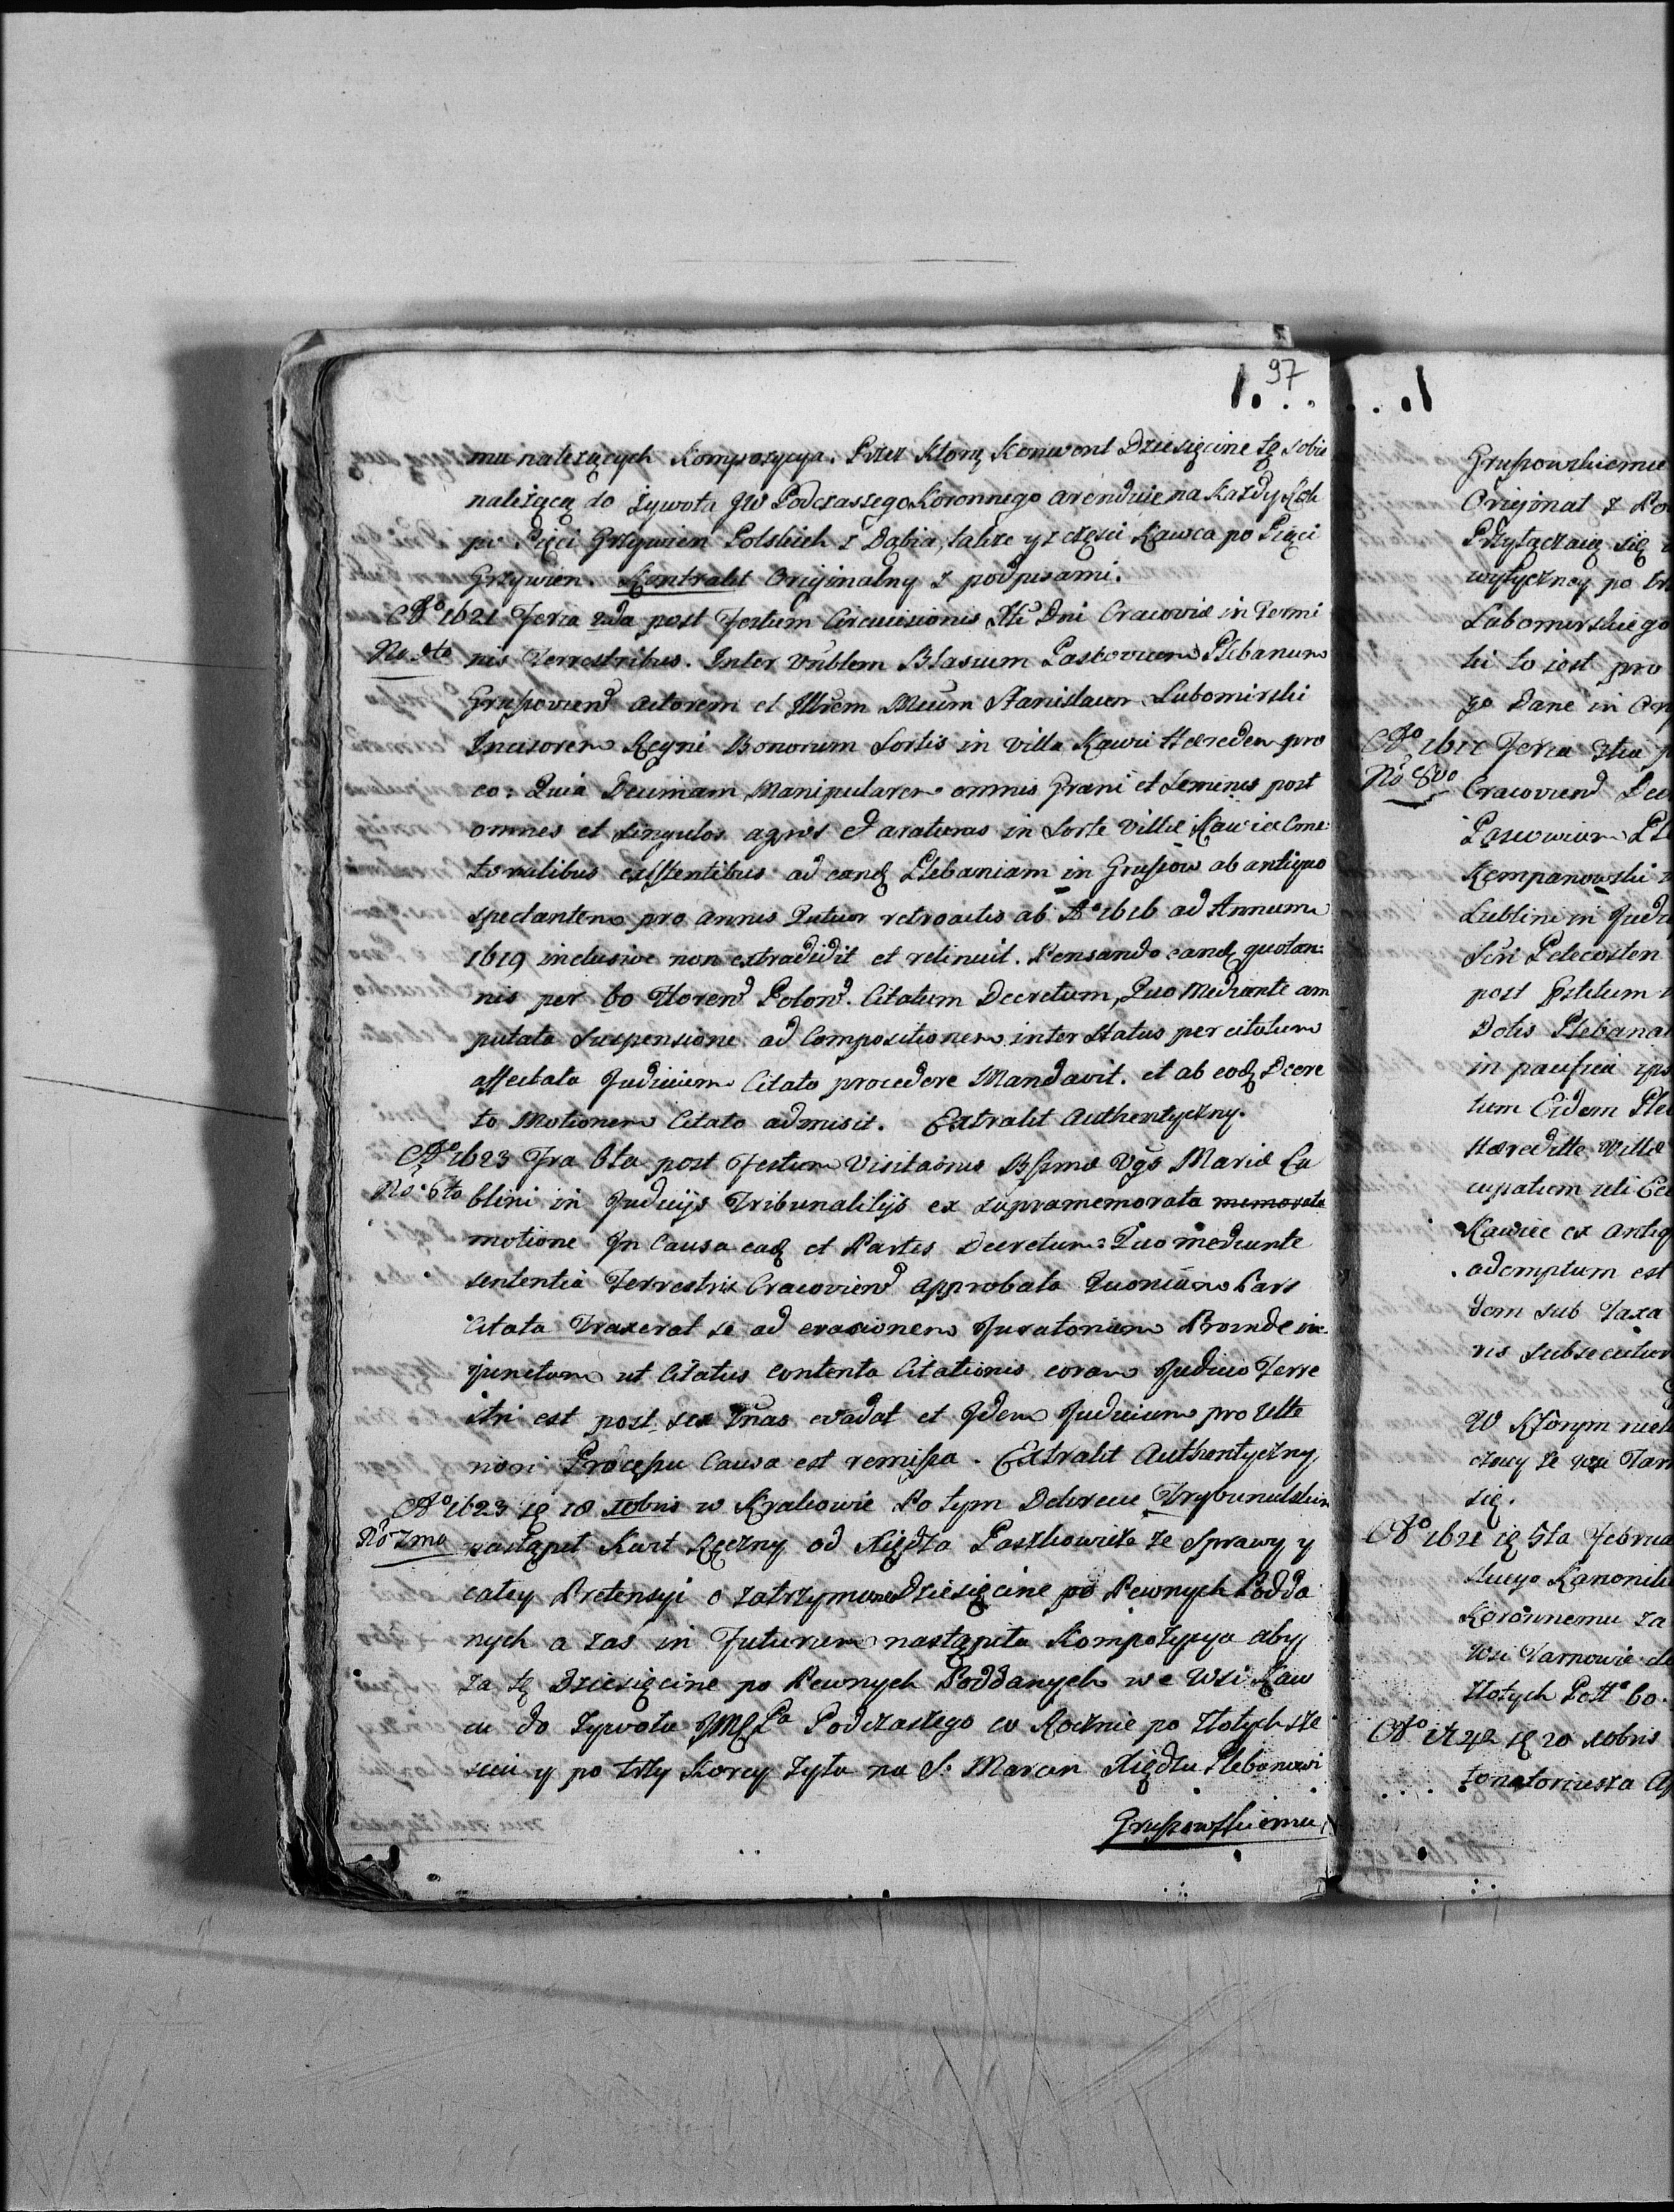 97
mu należących Kompozycya. Przez Ktorą Konwent Dziesięcine tę sobie
należącą do żywota JW Podczaszego Koronnego arenduie na Każdy Rok
po Pięci Grzywien Polskich z Dąbia, także y z częsci Kawca po Pięci
Grzywien. Kontrakt Oryginalny z podpisami.
Aº 1621 Feria 2da post Festum Circumcisionis Xti Dni Cracoviæ in Termi
No 5to nis Terrestribus. Inter Vnblem Blasium Paskovium Plebanum
Gruszovien Actorem et Illrem Mcum Stanislaum Lubomirski
Incisorem Regni Bonorum Sortis in Villa Kawci Hæredem pro
eo: Quia Decimam Manipularem omnis Grani et Seminis post
omnes et singulos agros et araturas in Sorte Villæ Kawiec Cme
tonalibus existentibus ad eandq Plebaniam in Gruszow ab antiquo
spectantem pro annis Qutuor retroactis ab Aº 1616 ad Annum
1619 inclusive non extradidit et retinuit. Pensando eandq quotan:
nis per 60 Floren Polon. Citatum Decretum, Quo Mediante am
putata Suspensione ad Compositionem inter Status per citatum
affectata Judicium Citato procedere Mandavit. et ab eodq Decre
to Motionem Citato admisit. Extrakt Authentyczny.
Aº 1623 Fra 6ta post Festum Visitaonis Bssmæ Vgs Mariæ Lu
No: 6to blini in Judicijs Tribunalitijs ex supramemorata memorata
motione In Causa eadq et Partes Decretum: Quo mediante
sententia Terrestris Cracovien approbata Quoniam Pars
Citata Traxerat se ad evasionem Juratoriam Proinde in:
junctum ut Citatus contenta Citationis coram Judicio Terre
stri est post sex Dnas evadat et Idem Judicium pro Ulte
riori Processu Causa est remissa. Extrakt Authentyczny.
Aº 1623 ię 18 Xbris w Krakowie Po tym Dekrecie Trybunalskim
No 7mo nastąpił Kwit Ręczny od Xiędza Paszkowicza ze Sprawy y
całey Pretensyi o zatrzymane Dziesięcine po Pewnych Podda
nych a zas in Futurum nastąpiła Kompozycya aby
za tę Dziesięcine po Pewnych Poddanych we Wsi Kaw
cu do żywota JMC Pa Podczaszego co Rocznie po Złotych sze
sciu y po trzy Korcy Żyta na S. Marcin Xiędzu Plebanowi
Gruszowskiemu

Gruszowskiemu
Oryginał z
Przyłączaią się
wytyczney po
Lubomirskiego
ki to iest pro
go Dane in
Feria
No 8vo Cracovien
Kempanowski
Lublini in
post
Dotis
in pacifica
tum Eidem
Hæreditte Villæ
Kawiec ex
ademptum est
dem sub Taxa
W Ktorym
się.
Aº 1621 ię 5ta
Koronnemu za
Wsi Tarnowie
Złotych 60.
ię 20 Xbris